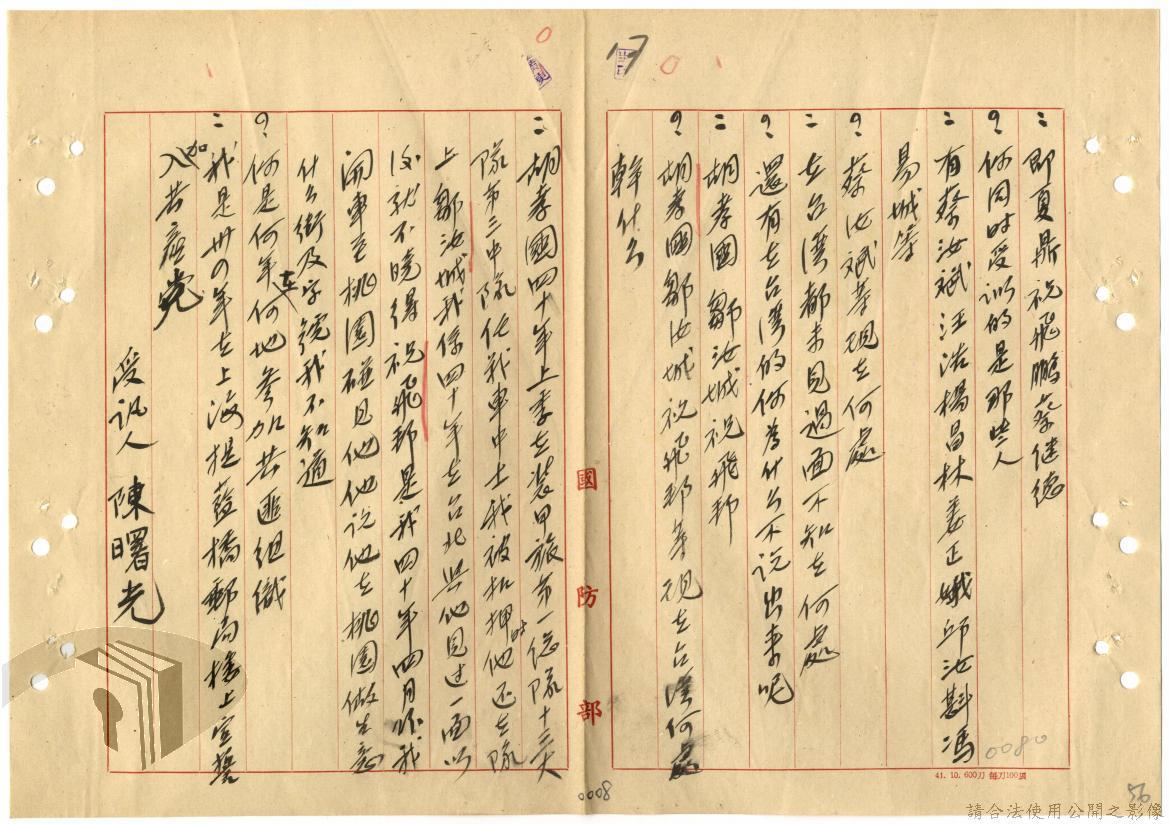 ：即夏鼎祝飛鵬蔡健德
？你同时受训的是那些人
：有蔡汝斌汪浩楊昌林姜正娥邱汝斟馮
易城等
？蔡汝斌等現在何處
：在台灣都未見過面不知在何處
？還有在台灣的你為什么不说出来呢
：胡孝國鄒汝城祝飛邦
？胡孝國鄒汝城祝飛邦等現在台灣何處
幹什么
：胡孝國四十年上季在裝甲旅第一總隊十三大
隊第三中隊任我車中士我被扣押时他还在隊
上鄒汝城我係四十年在台北與他見过一面以
後就不曉得祝飛邦是我四十年四月间我
開車至桃園碰見他他说他在桃園做生意
什么街及字號我不知道
？你是何年在何地参加共匪组織
：我是卅四年在上海提藍橋郵局樓上宣誓
加入共產党
受讯人 陳曙光
國防部
17
0080
0008
56
41. 10. 600刀 每刀100張
請合法使用公開之影像